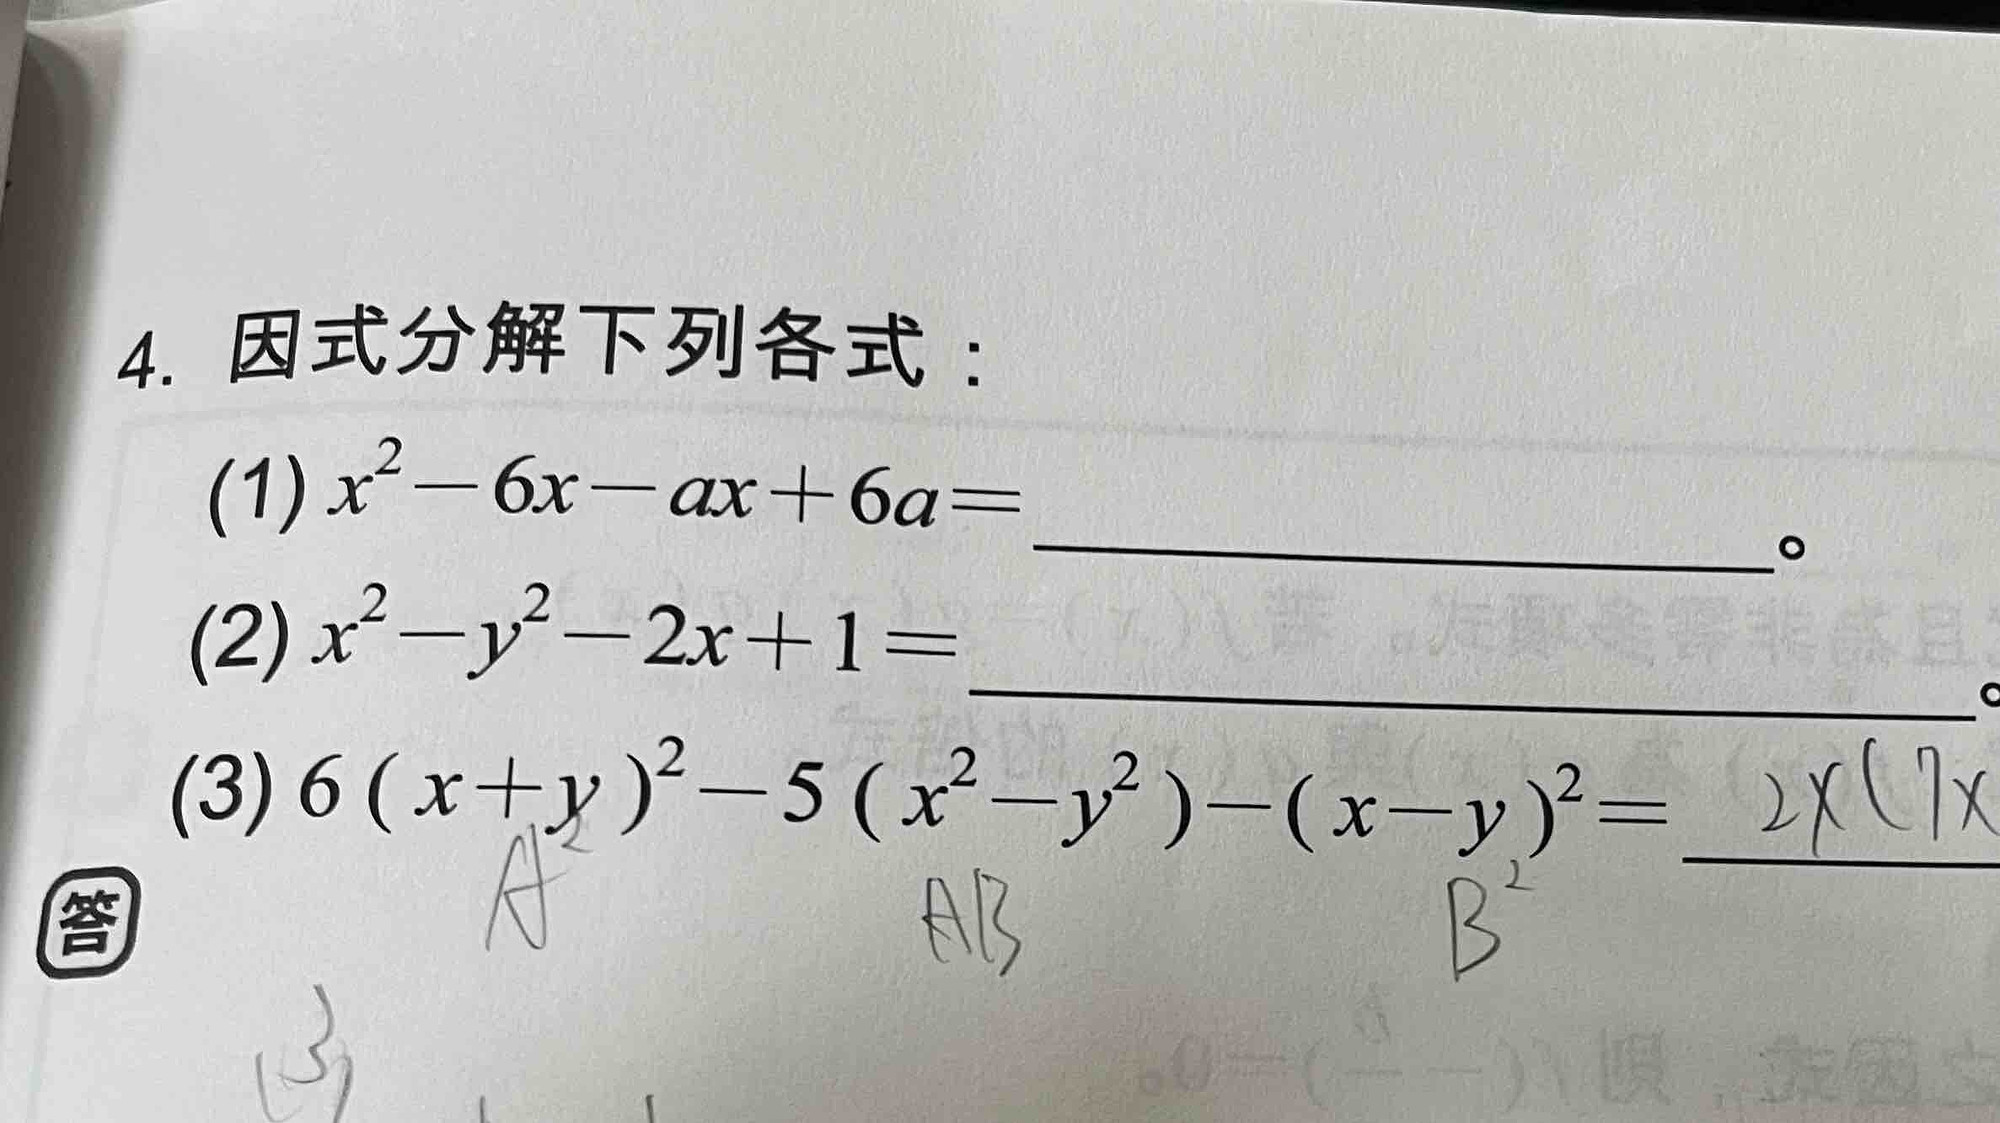 4. 因式分解下列各式：
(1) x²－6x－ax＋6a＝＿＿＿＿。
(2) x²－y²－2x＋1＝＿＿＿＿。
(3) 6(x＋y)²－5(x²－y²)－(x－y)²＝2x(7x
A² AB B²
答
(3)